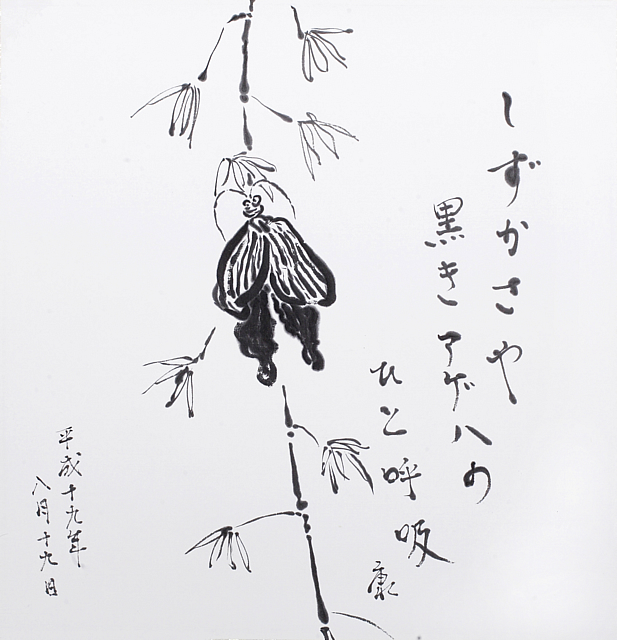 しずかさや
黒きアゲハの
ひと呼吸
康
平成十九年
八月十九日